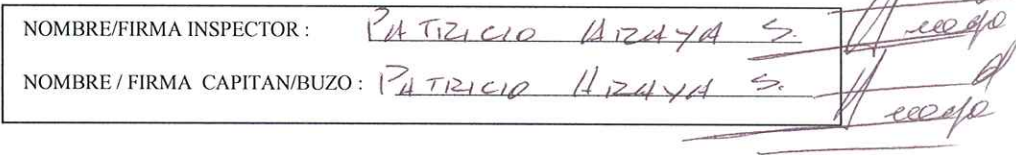 NOMBRE/FIRMA INSPECTOR : PATRICIO ARAYA S.
NOMBRE / FIRMA CAPITAN/BUZO : PATRICIO ARAYA S.